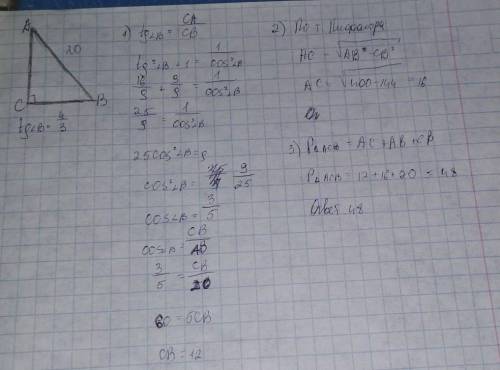 A
20
C
B
tg∠B = 4/3
1) tg∠B = CA/CB
tg²∠B + 1 = 1/cos²∠B
16/9 + 9/9 = 1/cos²∠B
25/9 = 1/cos²∠B
25cos²∠B = 9
cos²∠B = 9/25
cos∠B = 3/5
cos∠B = CB/AB
3/5 = CB/20
60 = 5CB
CB = 12
2) По т Пифагора
AC = √AB² - CB²
AC = √400 - 144 = 16
3) P∆ACB = AC + AB + CB
P∆ACB = 12 + 16 + 20 = 48
Ответ 48